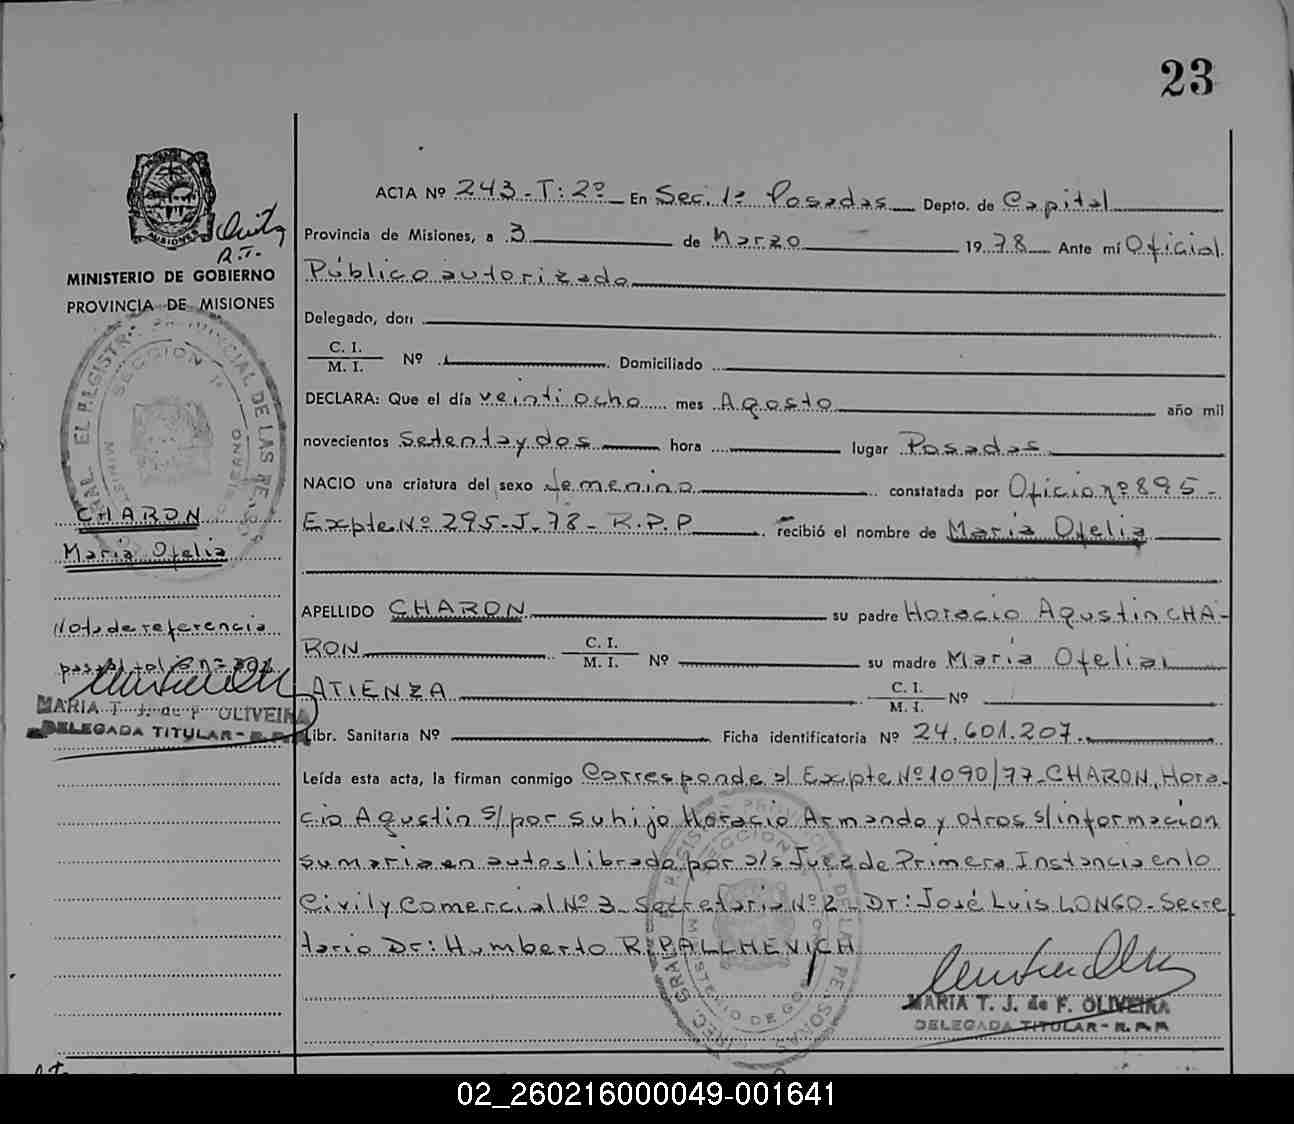 23
ACTA Nº 243-T: 2º En Sec. 1ª Posadas Depto. de Capital
Provincia de Misiones, a 3 de Marzo 1978 Ante mí Oficial
R.T.
MINISTERIO DE GOBIERNO
PROVINCIA DE MISIONES
Público autorizado
Delegado, don
C. I.
M. I. Nº Domiciliado
DECLARA: Que el día veintiocho mes Agosto año mil
novecientos setenta y dos hora lugar Posadas
NACIO una criatura del sexo femenino constatada por Oficio nº 895-
CHARON
Expte Nº 295-J-78- R.P.P recibió el nombre de Maria Ofelia
Maria Ofelia
APELLIDO CHARON su padre Horacio Agustin CHA-
Nota de referencia
RON C. I. M. I. Nº su madre Maria Ofelia
pasa al folio nº
ATIENZA C. I. M. I. Nº
MARIA T. J. de F. OLIVEIRA
DELEGADA TITULAR - R.P.P.
Libr. Sanitaria Nº Ficha identificatoria Nº 24.601.207.
Leída esta acta, la firman conmigo Corresponde al Expte Nº 1090/77-CHARON, Hora-
cio Agustin s/por su hijo Horacio Armando y otros s/informacion
sumaria en autos librado por a/s Juez de Primera Instancia en lo
Civil y Comercial Nº 3- Secretaria Nº 2- Dr: José Luis LONGO- Secre
tario Dr: Humberto R. PALLHEVICH
MARIA T. J. de F. OLIVEIRA
DELEGADA TITULAR - R.P.P.
02_260216000049-001641